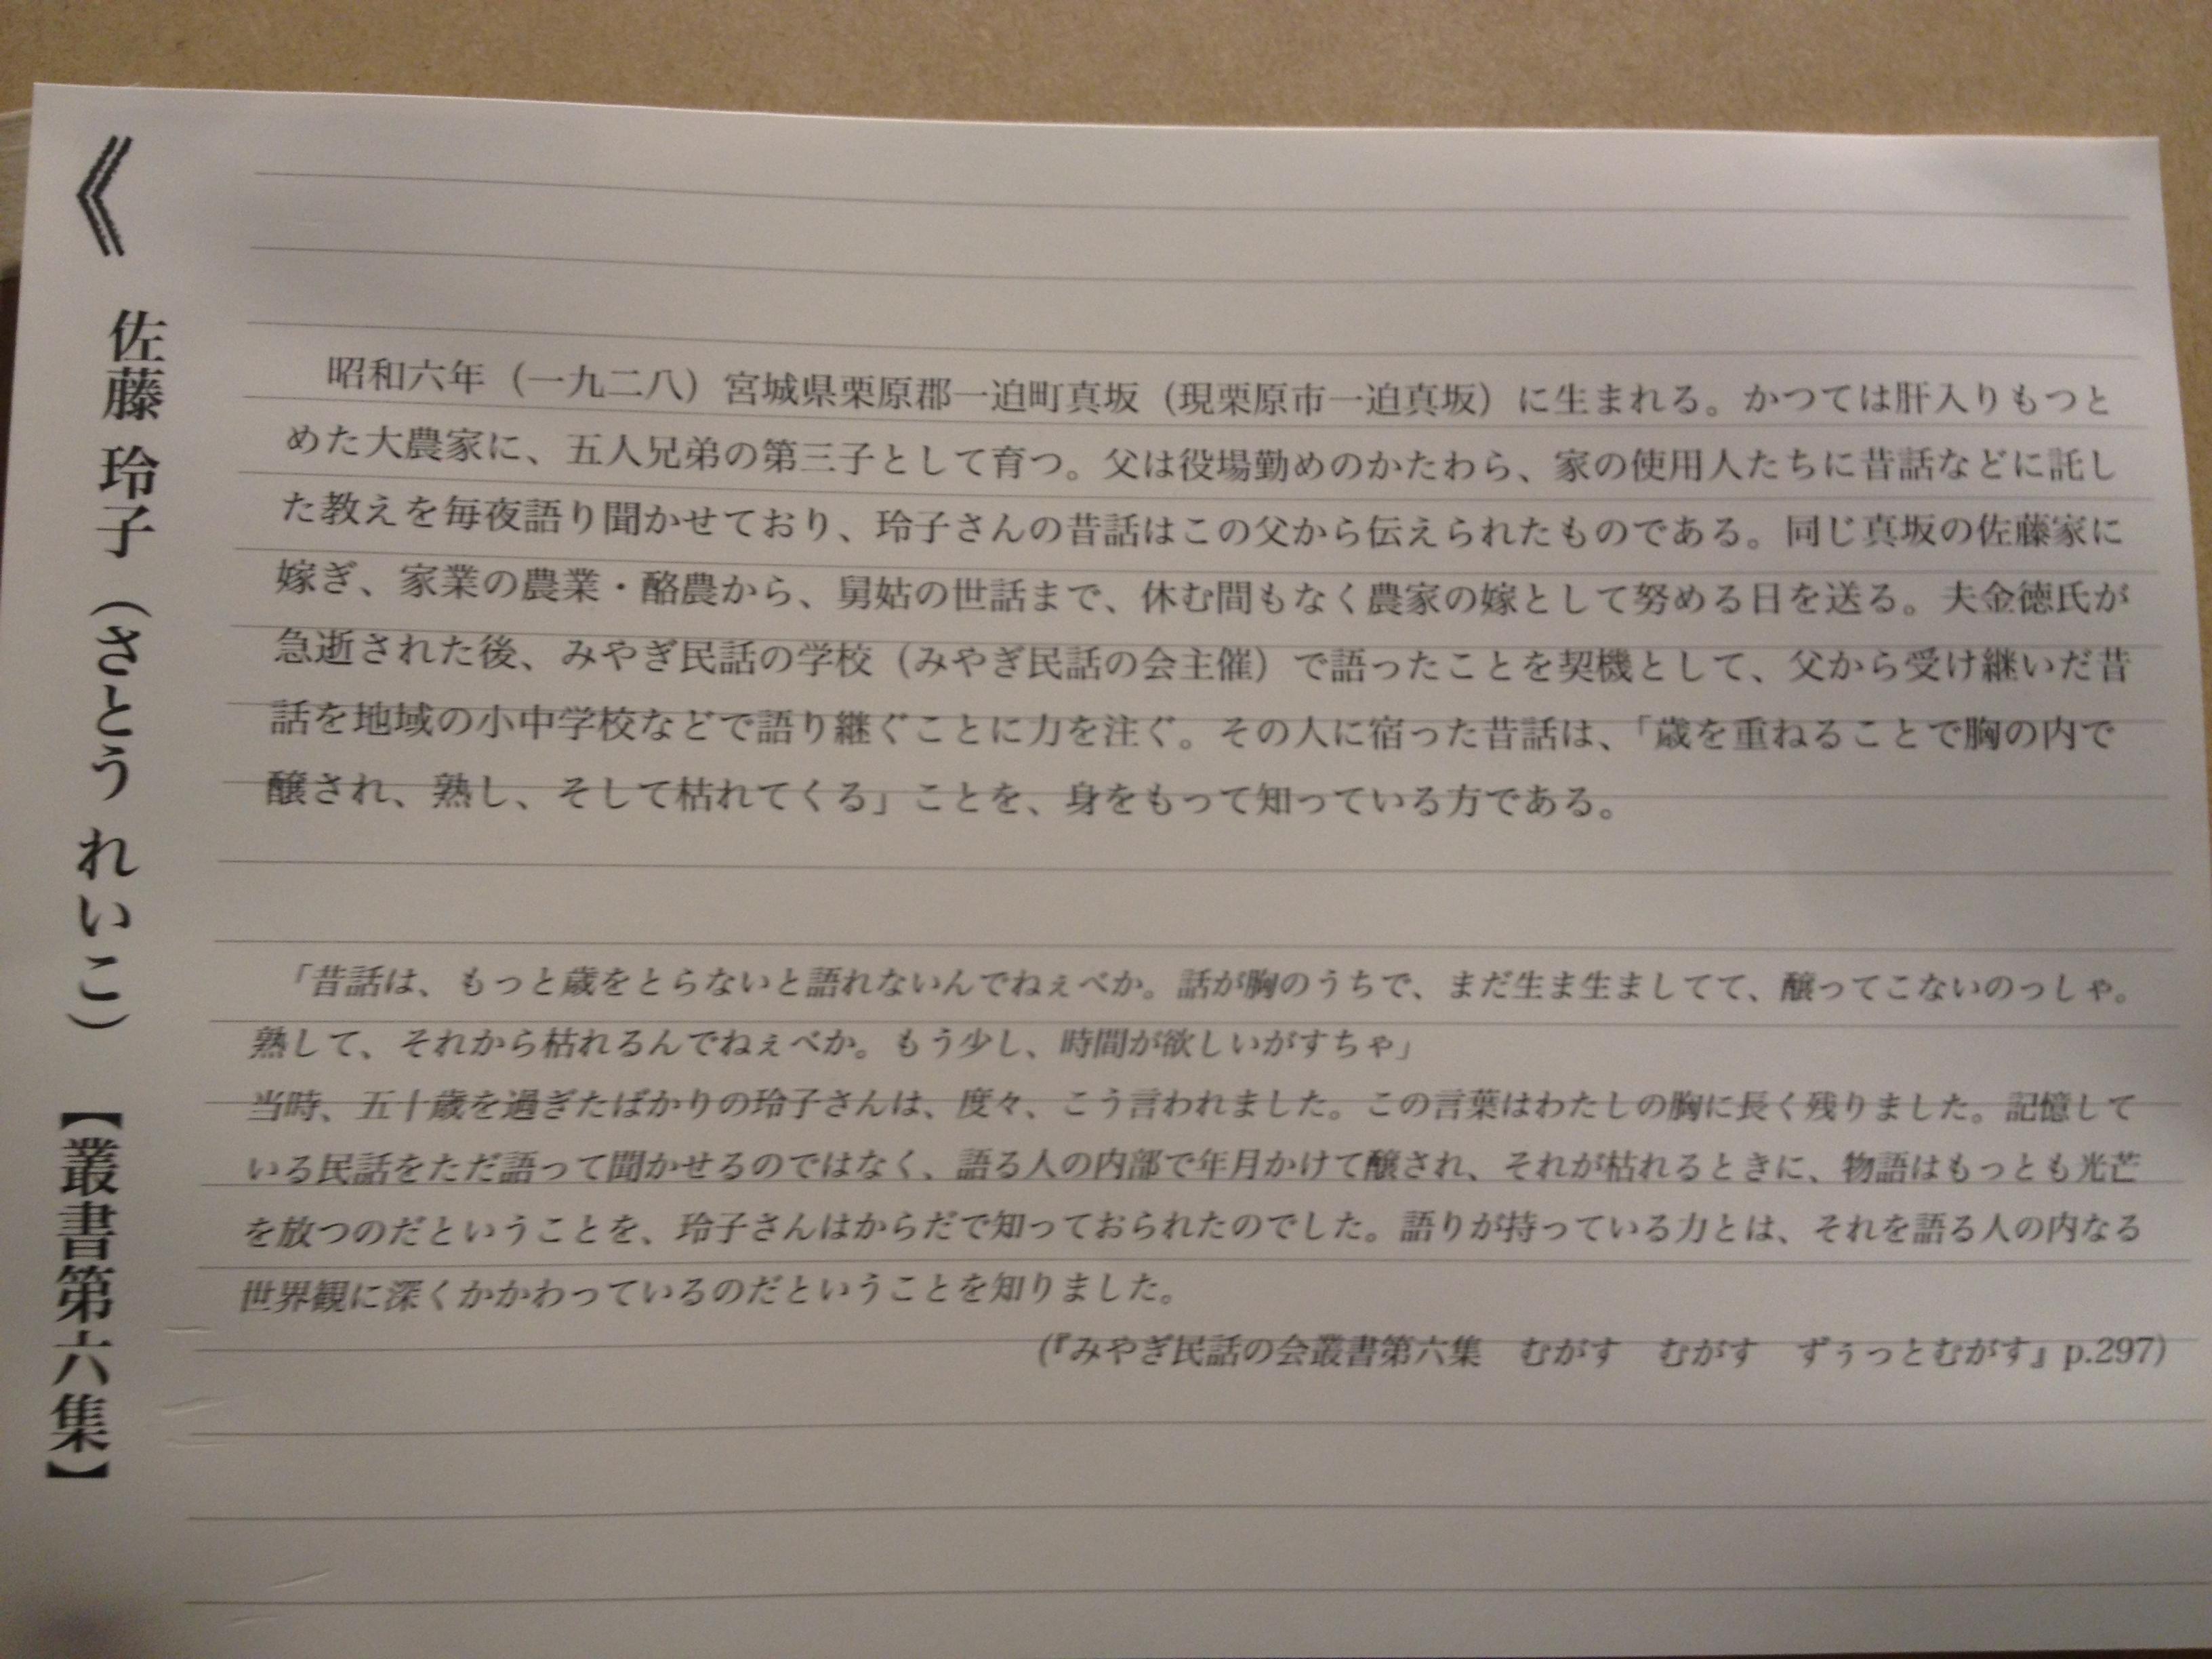 《 佐藤 玲子（さとう れいこ）【叢書第六集】
昭和六年（一九二八）宮城県栗原郡一迫町真坂（現栗原市一迫真坂）に生まれる。かつては肝入りもつと
めた大農家に、五人兄弟の第三子として育つ。父は役場勤めのかたわら、家の使用人たちに昔話などに託し
た教えを毎夜語り聞かせており、玲子さんの昔話はこの父から伝えられたものである。同じ真坂の佐藤家に
嫁ぎ、家業の農業・酪農から、舅姑の世話まで、休む間もなく農家の嫁として努める日を送る。夫金徳氏が
急逝された後、みやぎ民話の学校（みやぎ民話の会主催）で語ったことを契機として、父から受け継いだ昔
話を地域の小中学校などで語り継ぐことに力を注ぐ。その人に宿った昔話は、「歳を重ねることで胸の内で
醸され、熟し、そして枯れてくる」ことを、身をもって知っている方である。
「昔話は、もっと歳をとらないと語れないんでねぇべか。話が胸のうちで、まだ生ま生ましてて、醸ってこないのっしゃ。
熟して、それから枯れるんでねぇべか。もう少し、時間が欲しいがすちゃ」
当時、五十歳を過ぎたばかりの玲子さんは、度々、こう言われました。この言葉はわたしの胸に長く残りました。記憶して
いる民話をただ語って聞かせるのではなく、語る人の内部で年月かけて醸され、それが枯れるときに、物語はもっとも光芒
を放つのだということを、玲子さんはからだで知っておられたのでした。語りが持っている力とは、それを語る人の内なる
世界観に深くかかわっているのだということを知りました。
（『みやぎ民話の会叢書第六集　むがす　むがす　ずぅっとむがす』p.297）